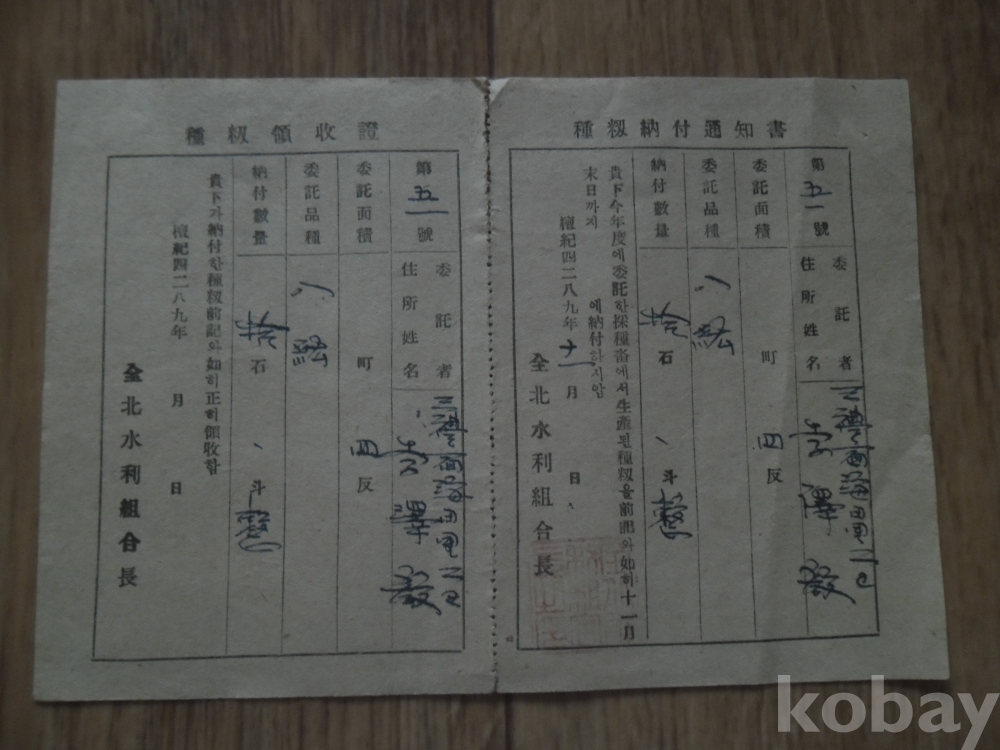 種籾納付通知書
第五一號
委託者
住所姓名
委託面積
町
四反
委託品種
八紘
納付數量
拾石
斗
貴下今年度에委託한採種畓에서生産된種籾을前記와如히十一月
末日까지
에納付하시압
檀紀四二八九年十一月
日
全北水利組合長
種籾領收證
第五一號
委託者
住所姓名
委託面積
町
四反
委託品種
八紘
納付數量
拾石
斗
貴下가納付한種籾前記와如히正히領收함
檀紀四二八九年
月
日
全北水利組合長
kobay